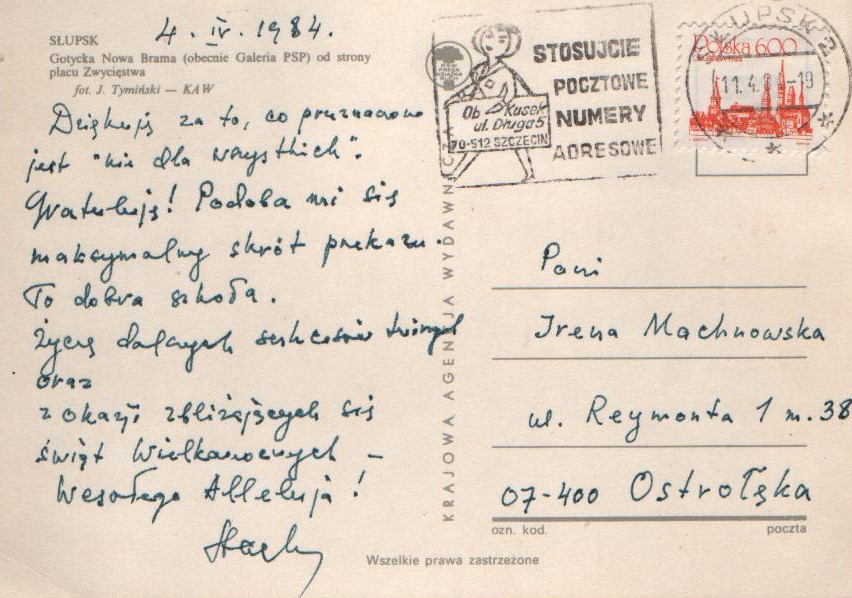 4. IV. 1984.
SŁUPSK
Gotycka Nowa Brama (obecnie Galeria PSP) od strony
placu Zwycięstwa
fot. J. Tymiński — KAW
Dziękuję za to, co przeznaczone
jest "nie dla wszystkich".
Gratuluję! Podoba mi się
maksymalny skrót przekazu.
To dobra szkoła.
Życzę dalszych sukcesów twórczych
oraz
z okazji zbliżających się
świąt Wielkanocnych –
Wesołego Alleluja!
KRAJOWA AGENCJA WYDAWNICZA
STOSUJCIE
POCZTOWE
NUMERY
ADRESOWE
Ob Kusek
ul. Długa 5
70-512 SZCZECIN
Polska 600
SŁUPSK 2
11.4.84-19
Pani
Irena Machnowska
ul. Reymonta 1 m. 38
07-400 Ostrołęka
ozn. kod. poczta
Wszelkie prawa zastrzeżone